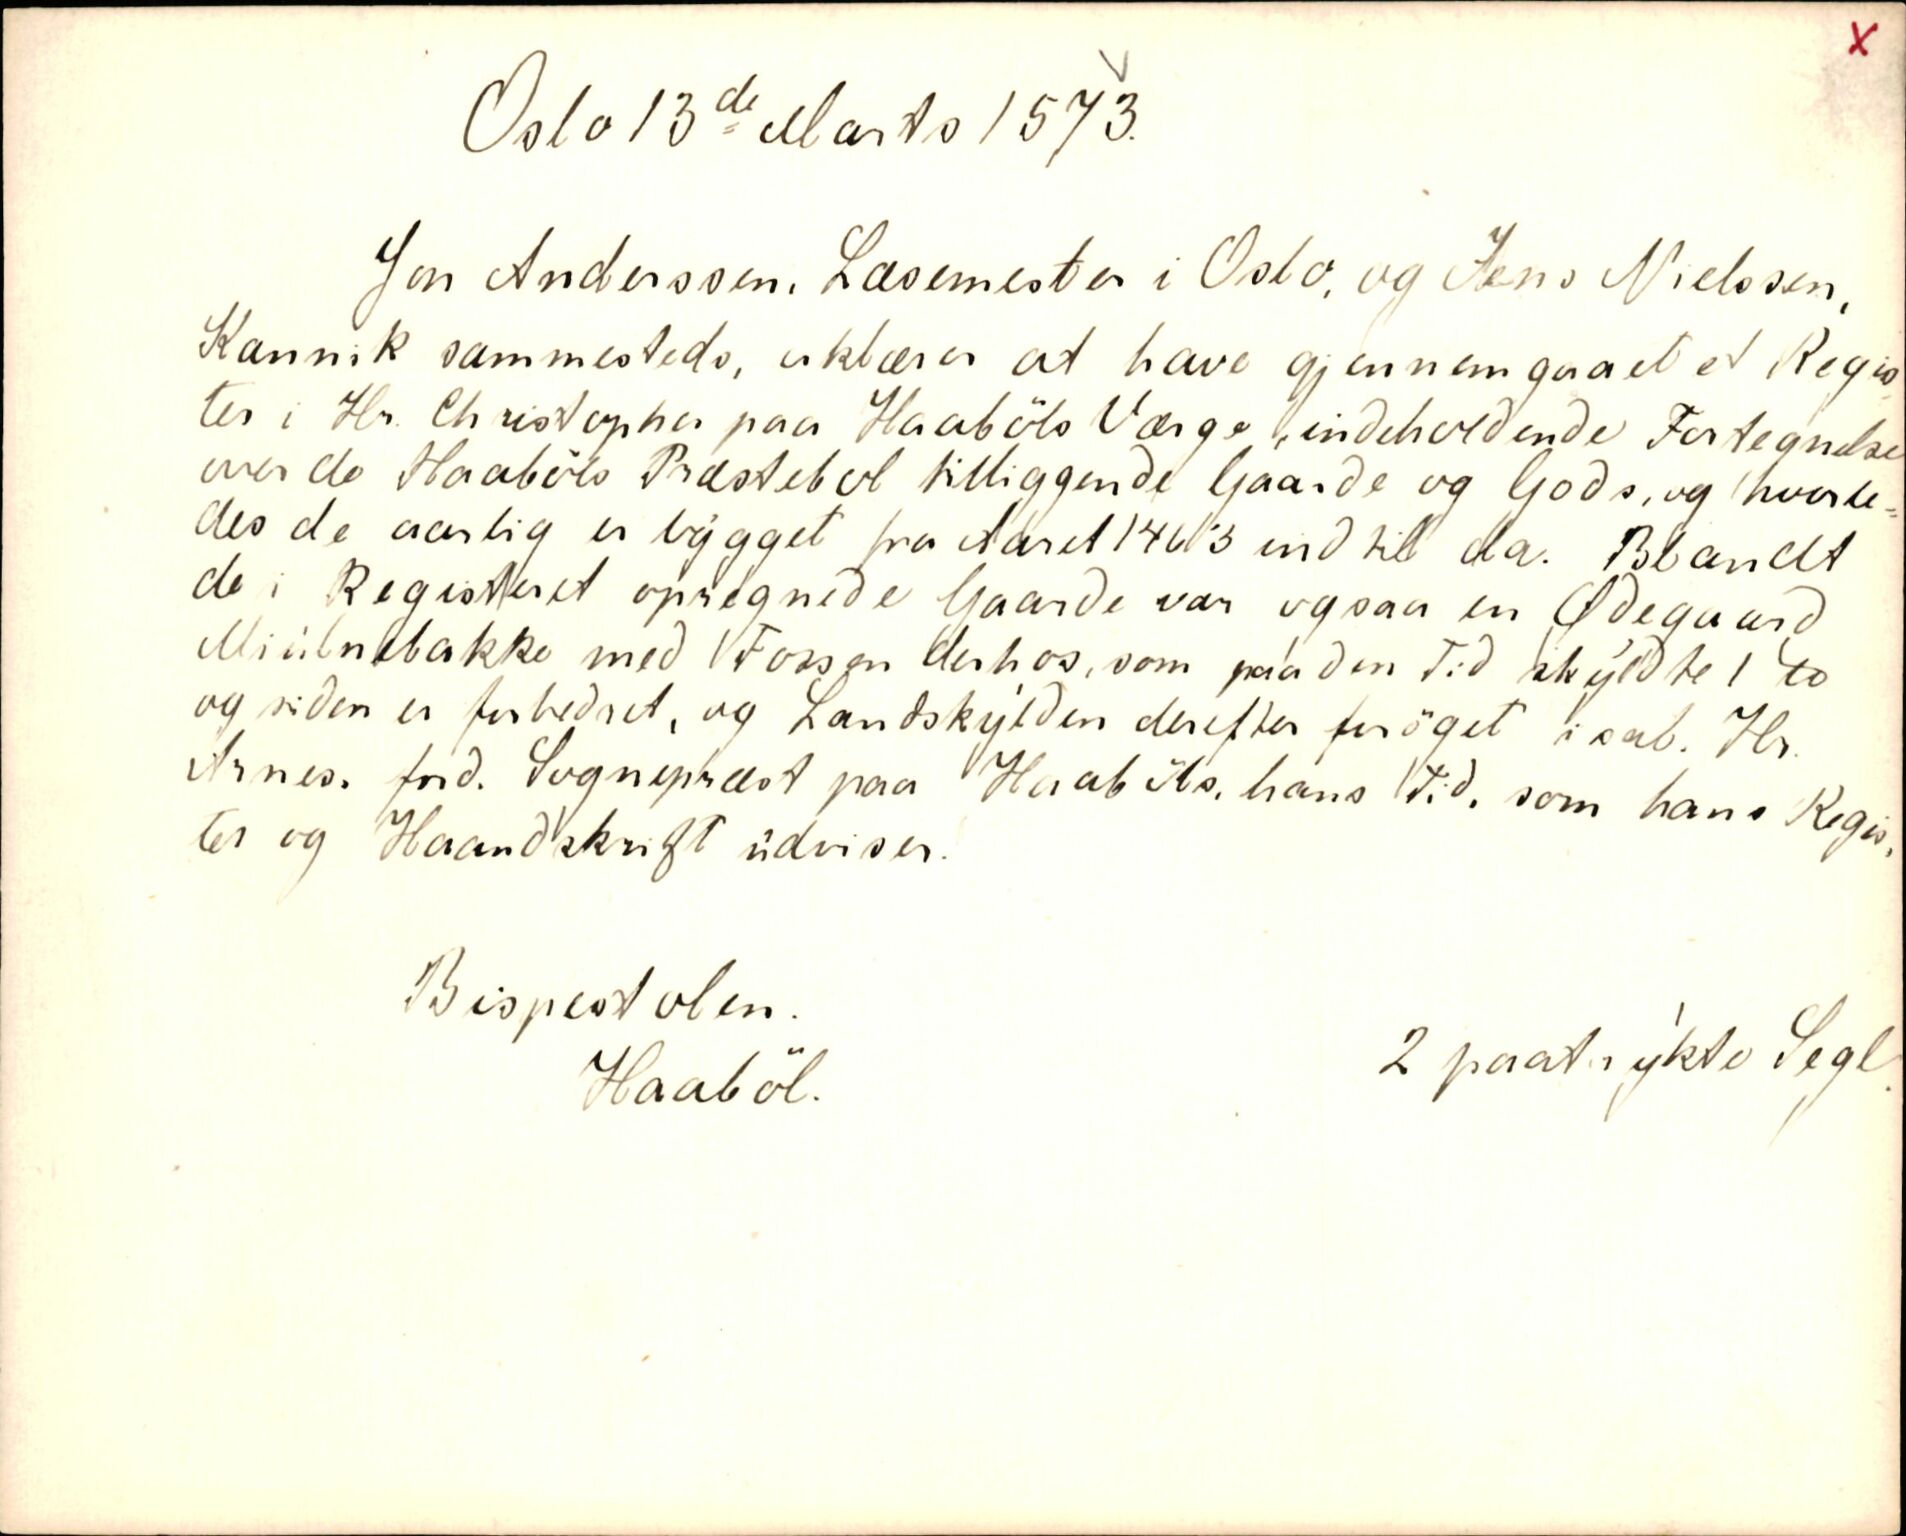 x
Oslo 13de Marts 1573.
Jon Anderssen, Læsemester i Oslo, og Jens Nielssen,
Kannik sammesteds, erklærer at have gjennemgaaet et Regis
ter i Hr. Christopher paa Haaböls Værge, indeholdende Fortegnelse
over de Haaböls Præstebol tilliggende Gaarde og Gods, og hvorle-
des de aarlig er bÿgget fra Aaret 1463 ind til da. Blandt
de i Registeret opregnede Gaarde var ogsaa en Ødegaard
Miülnebakke med Fossen derhos, som paa den Tid skÿldte 1
og siden er forbedret, og Landskÿlden derefter foröget i sal. Hr.
Arnes, ford. Sognepræst paa Haaböls, hans Tid, som hans Regis,
ter og Haandskrift üdviser.
Bispestolen.
Haaböl.
2 paatrÿkte Segl.